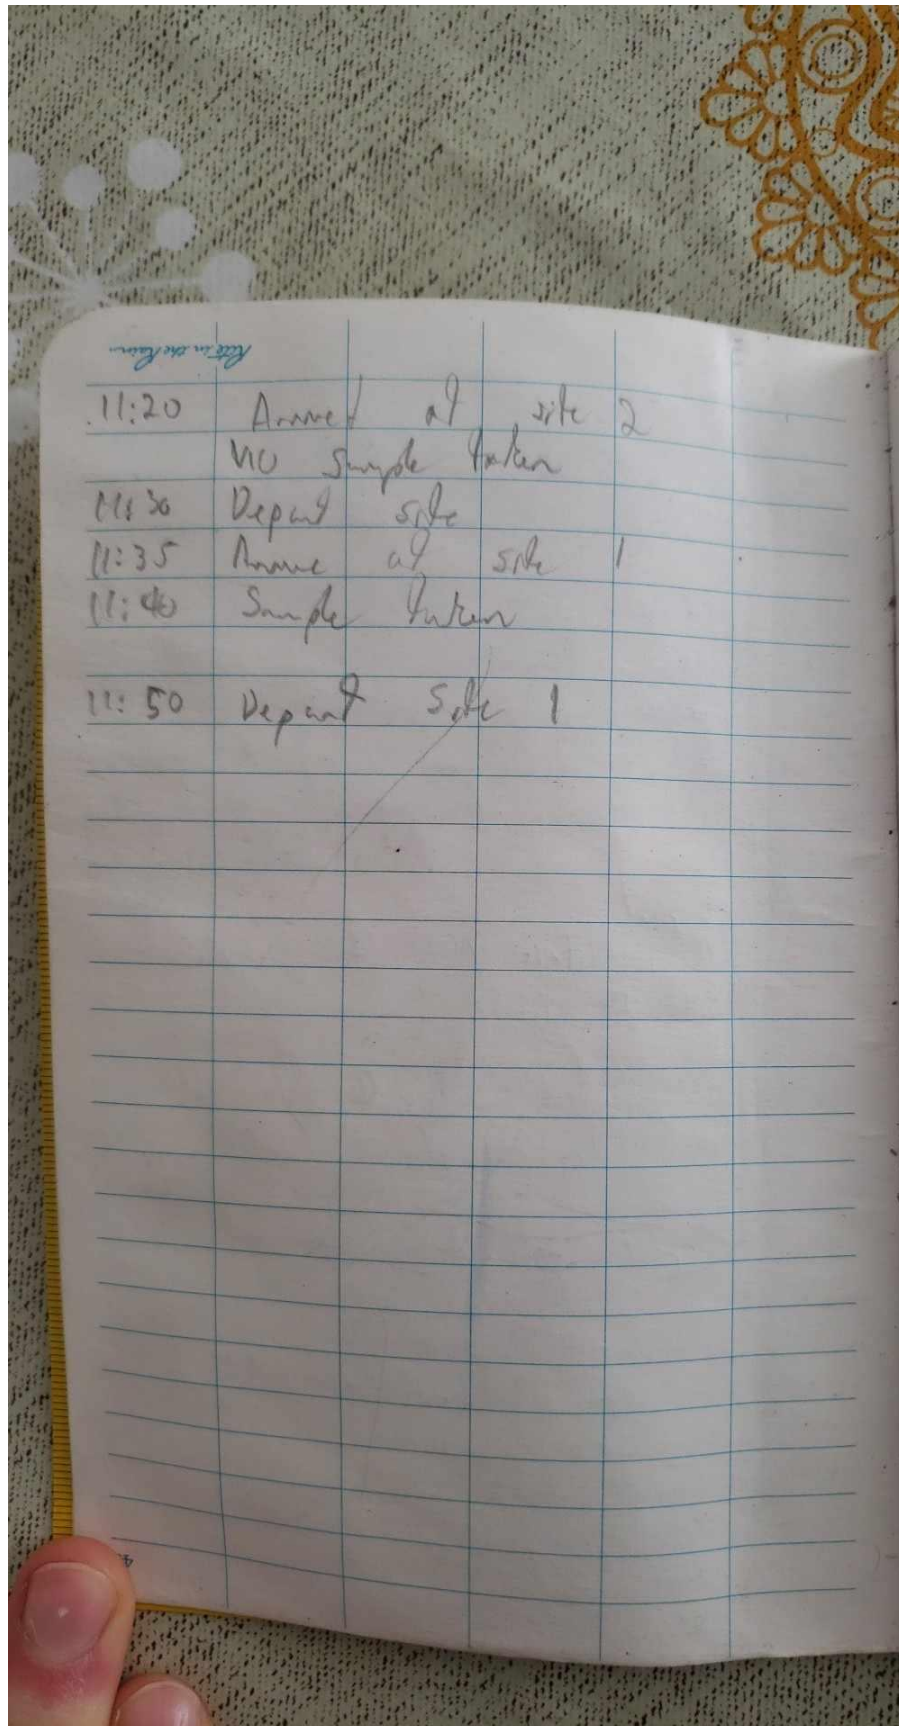 Rite in the Rain
11:20 Arrived at site 2
NO sample taken
11:30 Depart site
11:35 Arrive at site 1
11:40 Sample taken
11:50 Depart Site 1